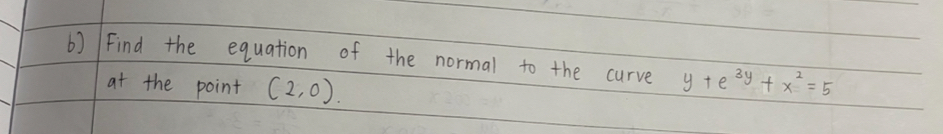 b) Find the equation of the normal to the curve y + e^{3y} + x² = 5
at the point (2,0).